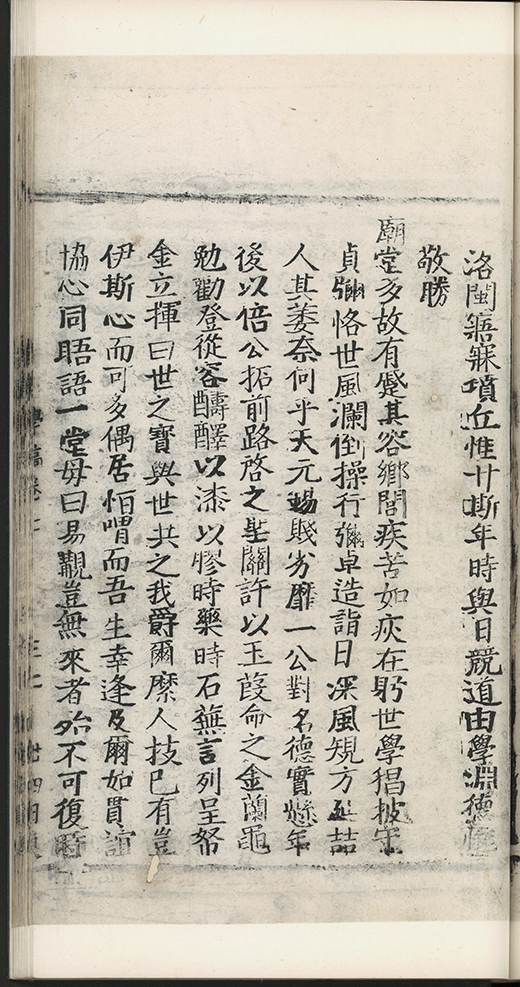 洛閩寤寐項丘惟廿斯年時與日競道由學淵德
敬勝
廟堂多故有蹙其容鄉閭疾苦如疚在躬世學猖披守
貞彌恪世風瀾倒操行彌卓造詣日深風規方喆
人其萎奈何乎天元賜賤劣靡一公對名德實懸年
後以倍公拓前路啓之聖關許以玉葭命之金蘭黽
勉勸登從容醻醳以漆以膠時藥時石蕪言列呈帑
金立揮曰世之寶與世共之我爵爾縻人技已有豈
伊斯心而可多偶居恒喟而吾生幸逢及爾如貫誼
協心同晤語一堂毋曰易覯豈無來者殆不可復
稿卷